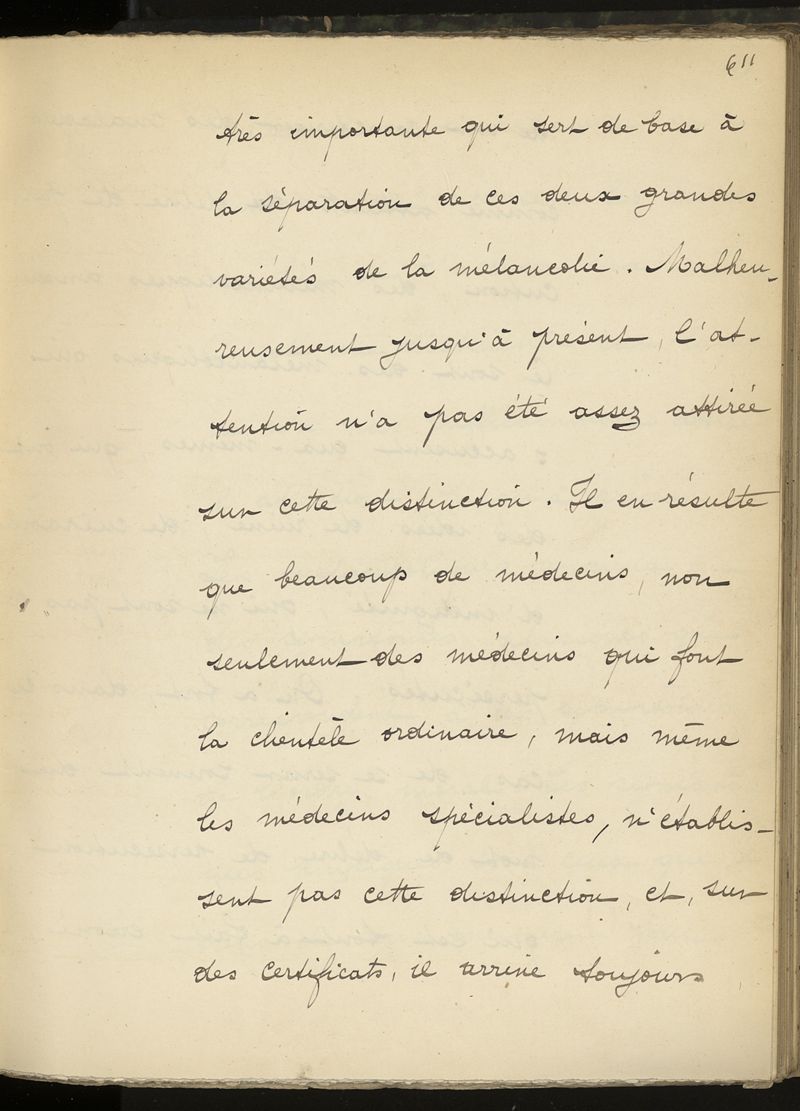 611
très importante qui sert de base à
la séparation de ces deux grandes
variétés de la mélancolie. Malheu-
reusement jusqu'à présent, l'at-
tention n'a pas été assez attirée
sur cette distinction. Il en résulte
que beaucoup de médecins, non
seulement des médecins qui font
la clientèle ordinaire, mais même
les médecins spécialistes, n'établis-
sent pas cette distinction, et, sur
des certificats, il arrive toujours